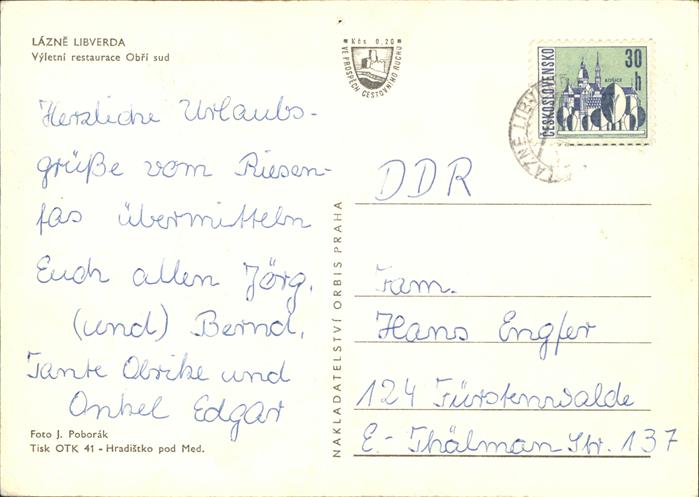 LÁZNĚ LIBVERDA
Výletní restaurace Obří sud
Kčs 0,20
VE PROSPĚCH CESTOVNÍHO RUCHU
ČESKOSLOVENSKO
30 h
KOŠICE
LÁZNĚ LIBV
Herzliche Urlaubs-
grüße vom Riesen-
fas übermitteln
Euch allen Jörg,
(und) Bernd,
Tante Ulrike und
Onkel Edgar
Foto J. Poborák
Tisk OTK 41 - Hradištko pod Med.
NAKLADATELSTVÍ ORBIS PRAHA
DDR
Fam.
Hans Engfer
124 Fürstenwalde
E.-Thälman Str. 137